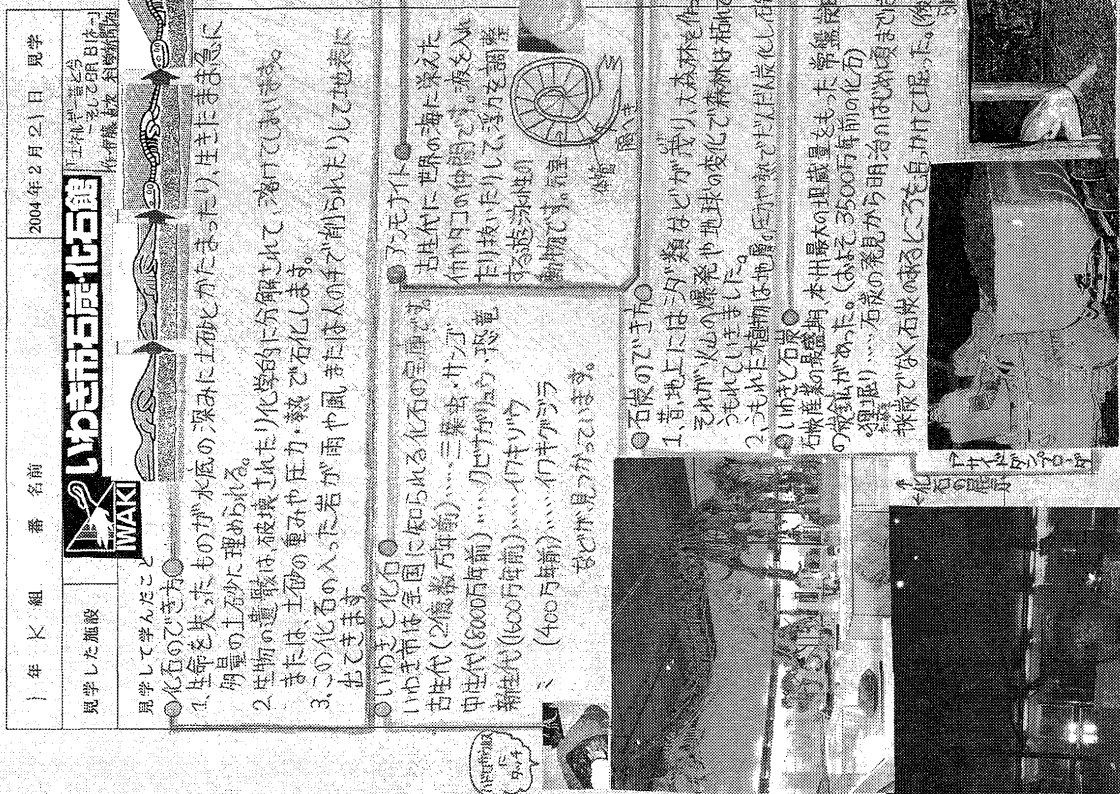 1年 K 組 番 名前
2004年2月21日 見学
見学した施設
IWAKI
いわき市石炭・化石館
見学して学んだこと
化石のでき方
1、生命を失ったものが水底の深みに土砂とかたまったり、生きたまま急に
多量の土砂に埋められる。
2、生物の遺骸は、破壊されたり化学的に分解されて、溶けてしまいます。
または、土砂の重みや圧力・熱で石化します。
3、この化石の入った岩が雨や風、または人の手で削られたりして地表に
出てきます。
いわきと化石
いわき市は全国に知られる化石の宝庫です。
古生代(2億数万年前)……三葉虫・サンゴ
中生代(8000万年前)……クビナガリュウ・恐竜
新生代(1600万年前)……イワキゾウ
〃 (400万年前)……イワキクジラ
などが見つかっています。
アンモナイト
古生代に世界の海に栄えた
イカやタコの仲間です。液を入れ
たり抜いたりして、浮力を調整
する遊泳性の
動物です。
気室
体管
隔へき
石炭のでき方
1、昔、地上にはシダ類などが茂り、大森林を作っ
それが火山の爆発や地球の変化で森林は枯れて
うもれていきました。
2、うもれた植物は地層の圧力や熱でだんだん炭化し、石
いわきと石炭
石炭産業の最盛期、本州最大の埋蔵量をもった常磐炭
の炭鉱があった。(およそ3500万年前の化石)
狸掘り……石炭の発見から明治のはじめ頃まで
探炭でなく石炭のあるところを追っかけて掘った。
↑サイドダンプローダ
↑化石の展示
タッチ